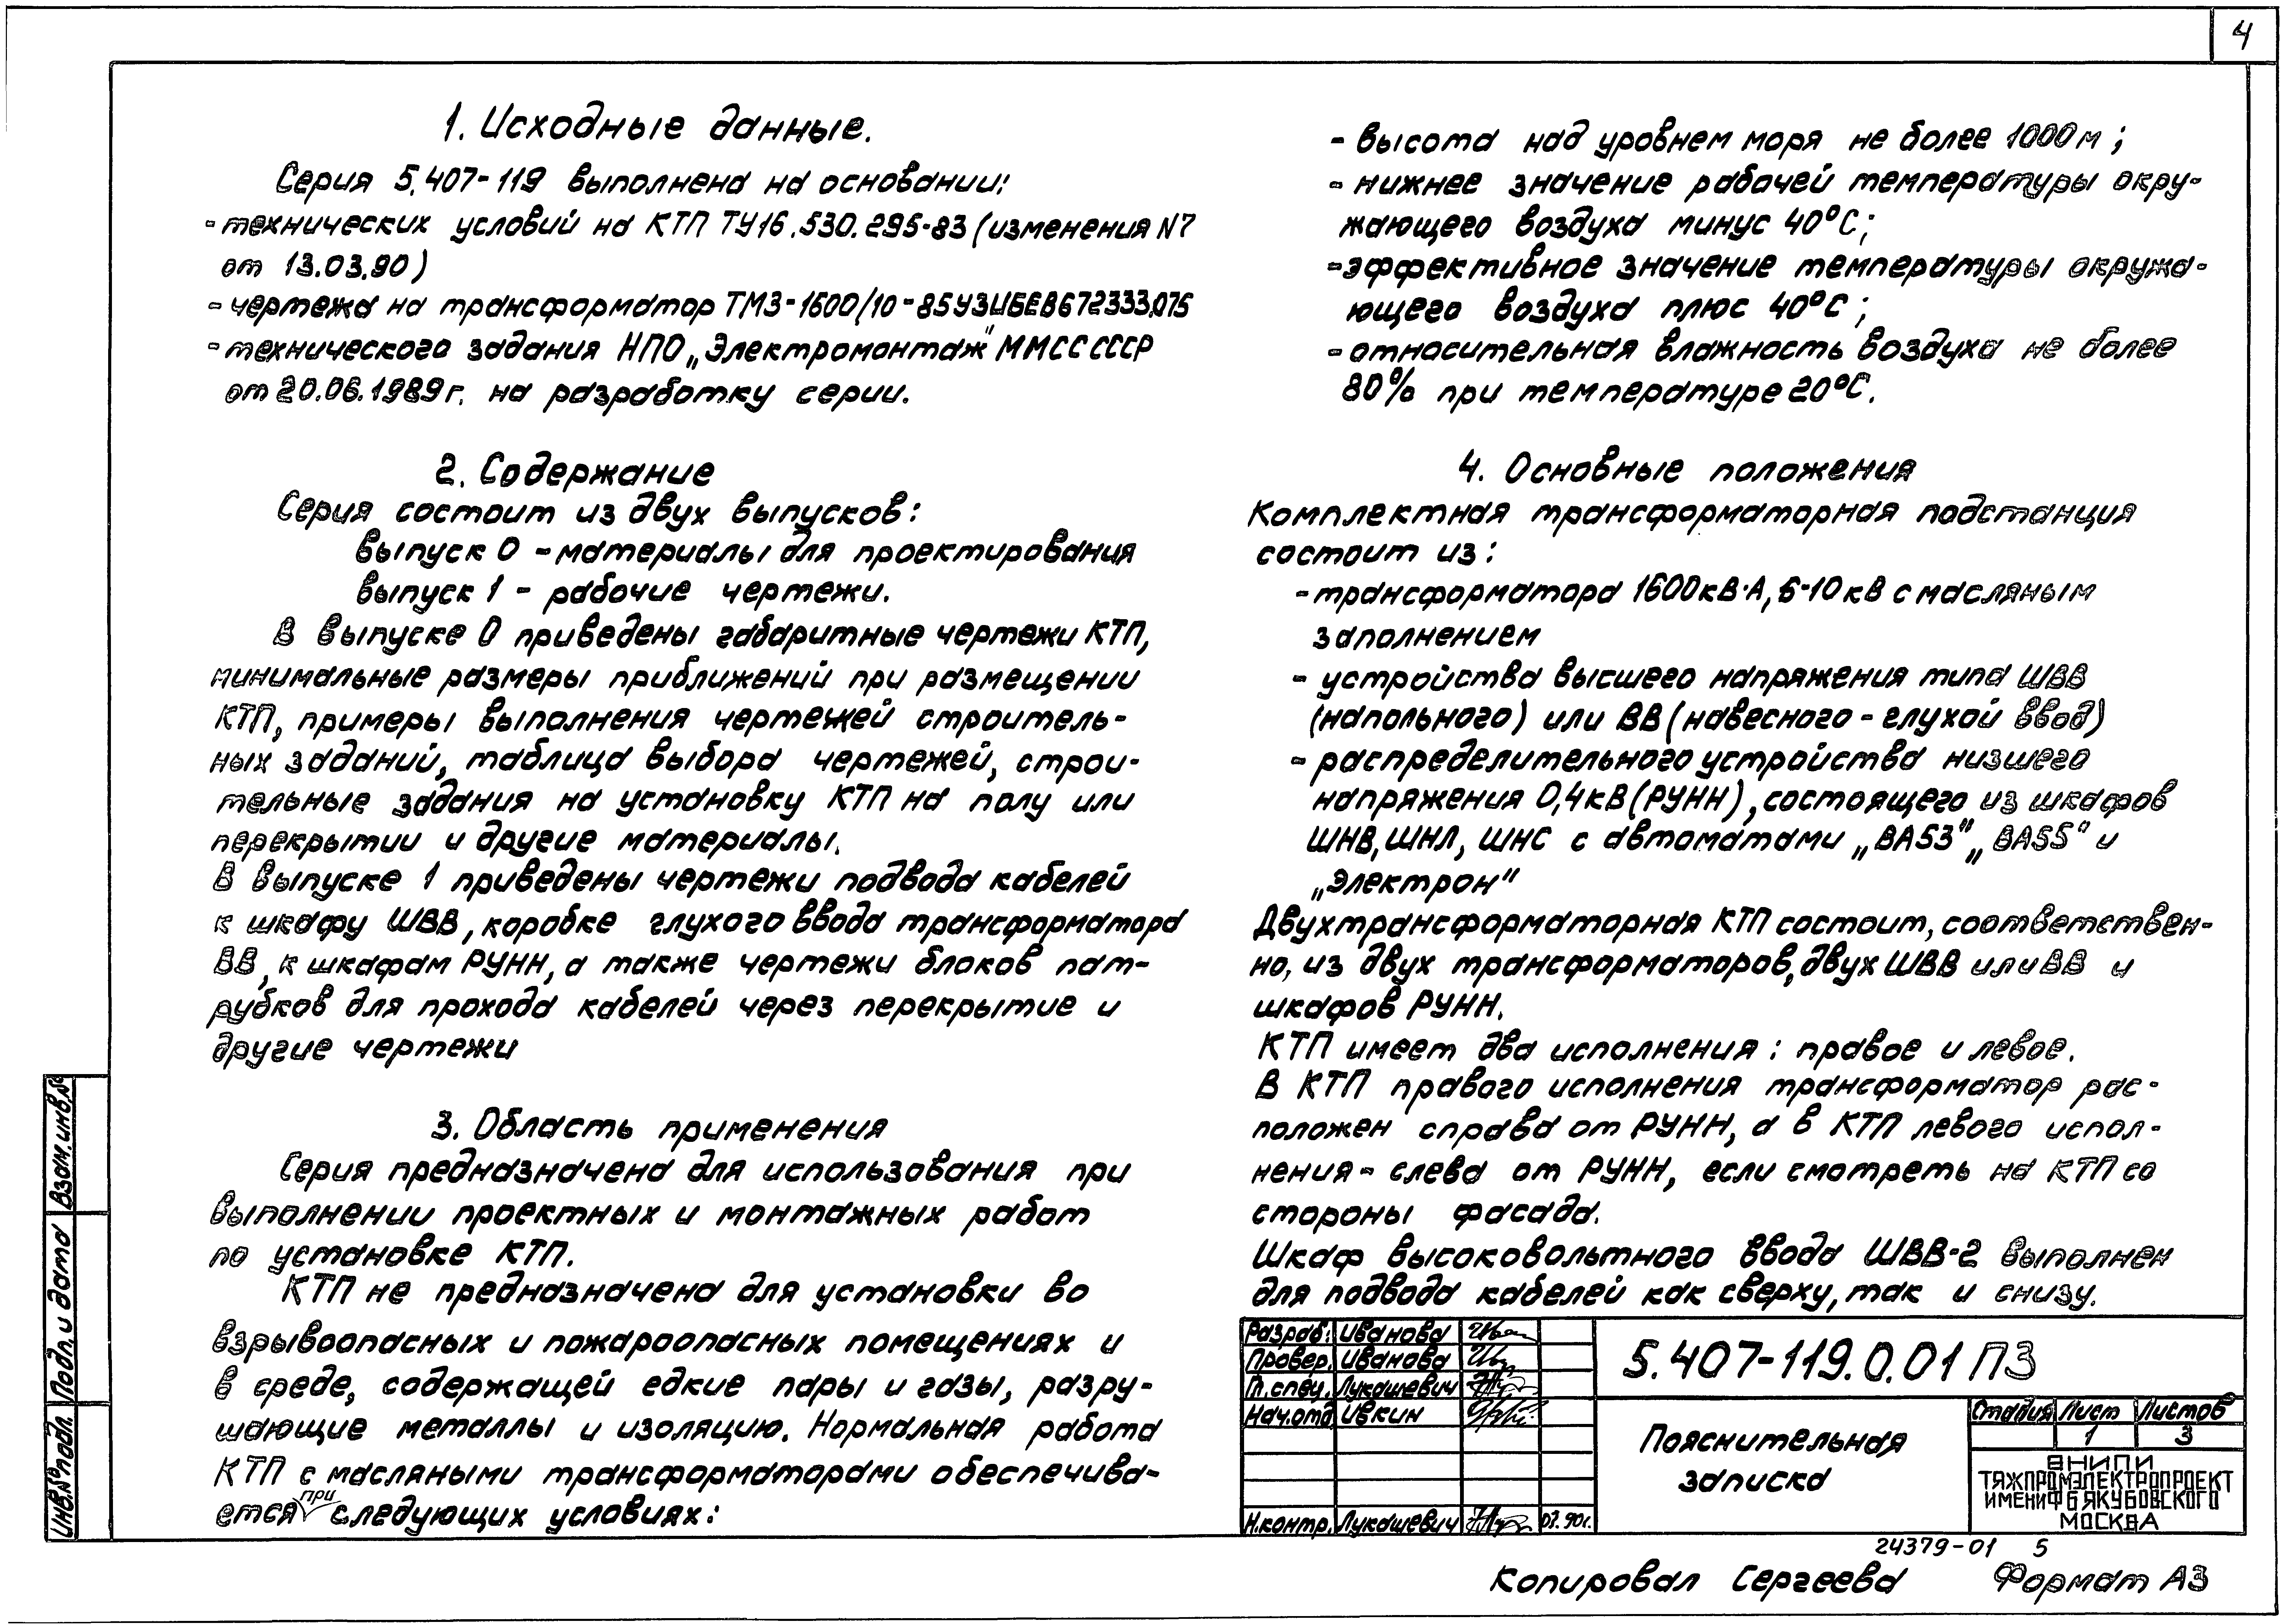 4
1. Исходные данные.
Серия 5.407-119 выполнена на основании:
- технических условий на КТП ТУ16.530.295-83 (изменения N7
от 13.03.90)
- чертежа на трансформатор ТМЗ-1600/10-85У3ИБЕВ672333.075
- технического задания НПО „Электромонтаж" ММСС СССР
от 20.06.1989г. на разработку серии.
2. Содержание
Серия состоит из двух выпусков:
выпуск 0 - материалы для проектирования
выпуск 1 - рабочие чертежи.
В выпуске 0 приведены габаритные чертежи КТП,
минимальные размеры приближений при размещении
КТП, примеры выполнения чертежей строитель-
ных заданий, таблица выбора чертежей, строи-
тельные задания на установку КТП на полу или
перекрытии и другие материалы.
В выпуске 1 приведены чертежи подвода кабелей
к шкафу ШВВ, коробке глухого ввода трансформатора
ВВ, к шкафам РУНН, а также чертежи блоков пат-
рубков для прохода кабелей через перекрытие и
другие чертежи
3. Область применения
Серия предназначена для использования при
выполнении проектных и монтажных работ
по установке КТП.
КТП не предназначена для установки во
взрывоопасных и пожароопасных помещениях и
в среде, содержащей едкие пары и газы, разру-
шающие металлы и изоляцию. Нормальная работа
КТП с масляными трансформаторами обеспечива-
ется при следующих условиях:
- высота над уровнем моря не более 1000м;
- нижнее значение рабочей температуры окру-
жающего воздуха минус 40°С;
- эффективное значение температуры окружа-
ющего воздуха плюс 40°С;
- относительная влажность воздуха не более
80% при температуре 20°С.
4. Основные положения
Комплектная трансформаторная подстанция
состоит из:
- трансформатора 1600кВ·А, 6-10кВ с масляным
заполнением
- устройства высшего напряжения типа ШВВ
(напольного) или ВВ (навесного - глухой ввод)
- распределительного устройства низшего
напряжения 0,4кВ (РУНН), состоящего из шкафов
ШНВ, ШНЛ, ШНС с автоматами „ВА53" „ВА55" и
„Электрон"
Двухтрансформаторная КТП состоит, соответствен-
но, из двух трансформаторов, двух ШВВ или ВВ и
шкафов РУНН.
КТП имеет два исполнения: правое и левое.
В КТП правого исполнения трансформатор рас-
положен справа от РУНН, а в КТП левого испол-
нения - слева от РУНН, если смотреть на КТП со
стороны фасада.
Шкаф высоковольтного ввода ШВВ-2 выполнен
для подвода кабелей как сверху, так и снизу.
Разраб. Иванова
Провер. Иванова
Гл.спец. Лукашевич
Нач.отд Ивкин
Н.контр. Лукашевич 07.90г.
5.407-119.0.01 ПЗ
Пояснительная
записка
Стадия Лист Листов
1 3
ВНИПИ
ТЯЖПРОМЭЛЕКТРОПРОЕКТ
ИМЕНИ Ф Б ЯКУБОВСКОГО
МОСКВА
24379-01 5
Копировал Сергеева Формат А3
Взам.инв.№
Подп. и дата
Инв.№ подл.